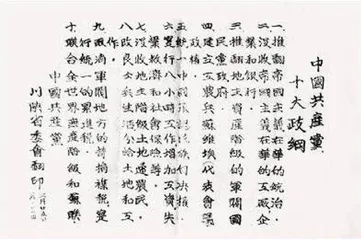 中國共産黨
十大政綱
一.推翻帝國主義在華的統治，
二.没收帝國主義在華的工廠，企
業和銀行.
三.推翻地主資産階級的軍閥國
民黨政府.
四.建立工農兵蘇維埃代表會議
政權.
五.統一中國民族自决
六.實行八小時工作增加工資失
業救濟和社會保險等.
七.没收地主階級土地歸農民.
八.改良士兵生活分給土地和工
作.
九.取消軍閥地方的苛捐雜税實
行統一的累進税.
十.聯合全世界無産階級和蘇聯.
中國共産黨
川陝省委會翻印